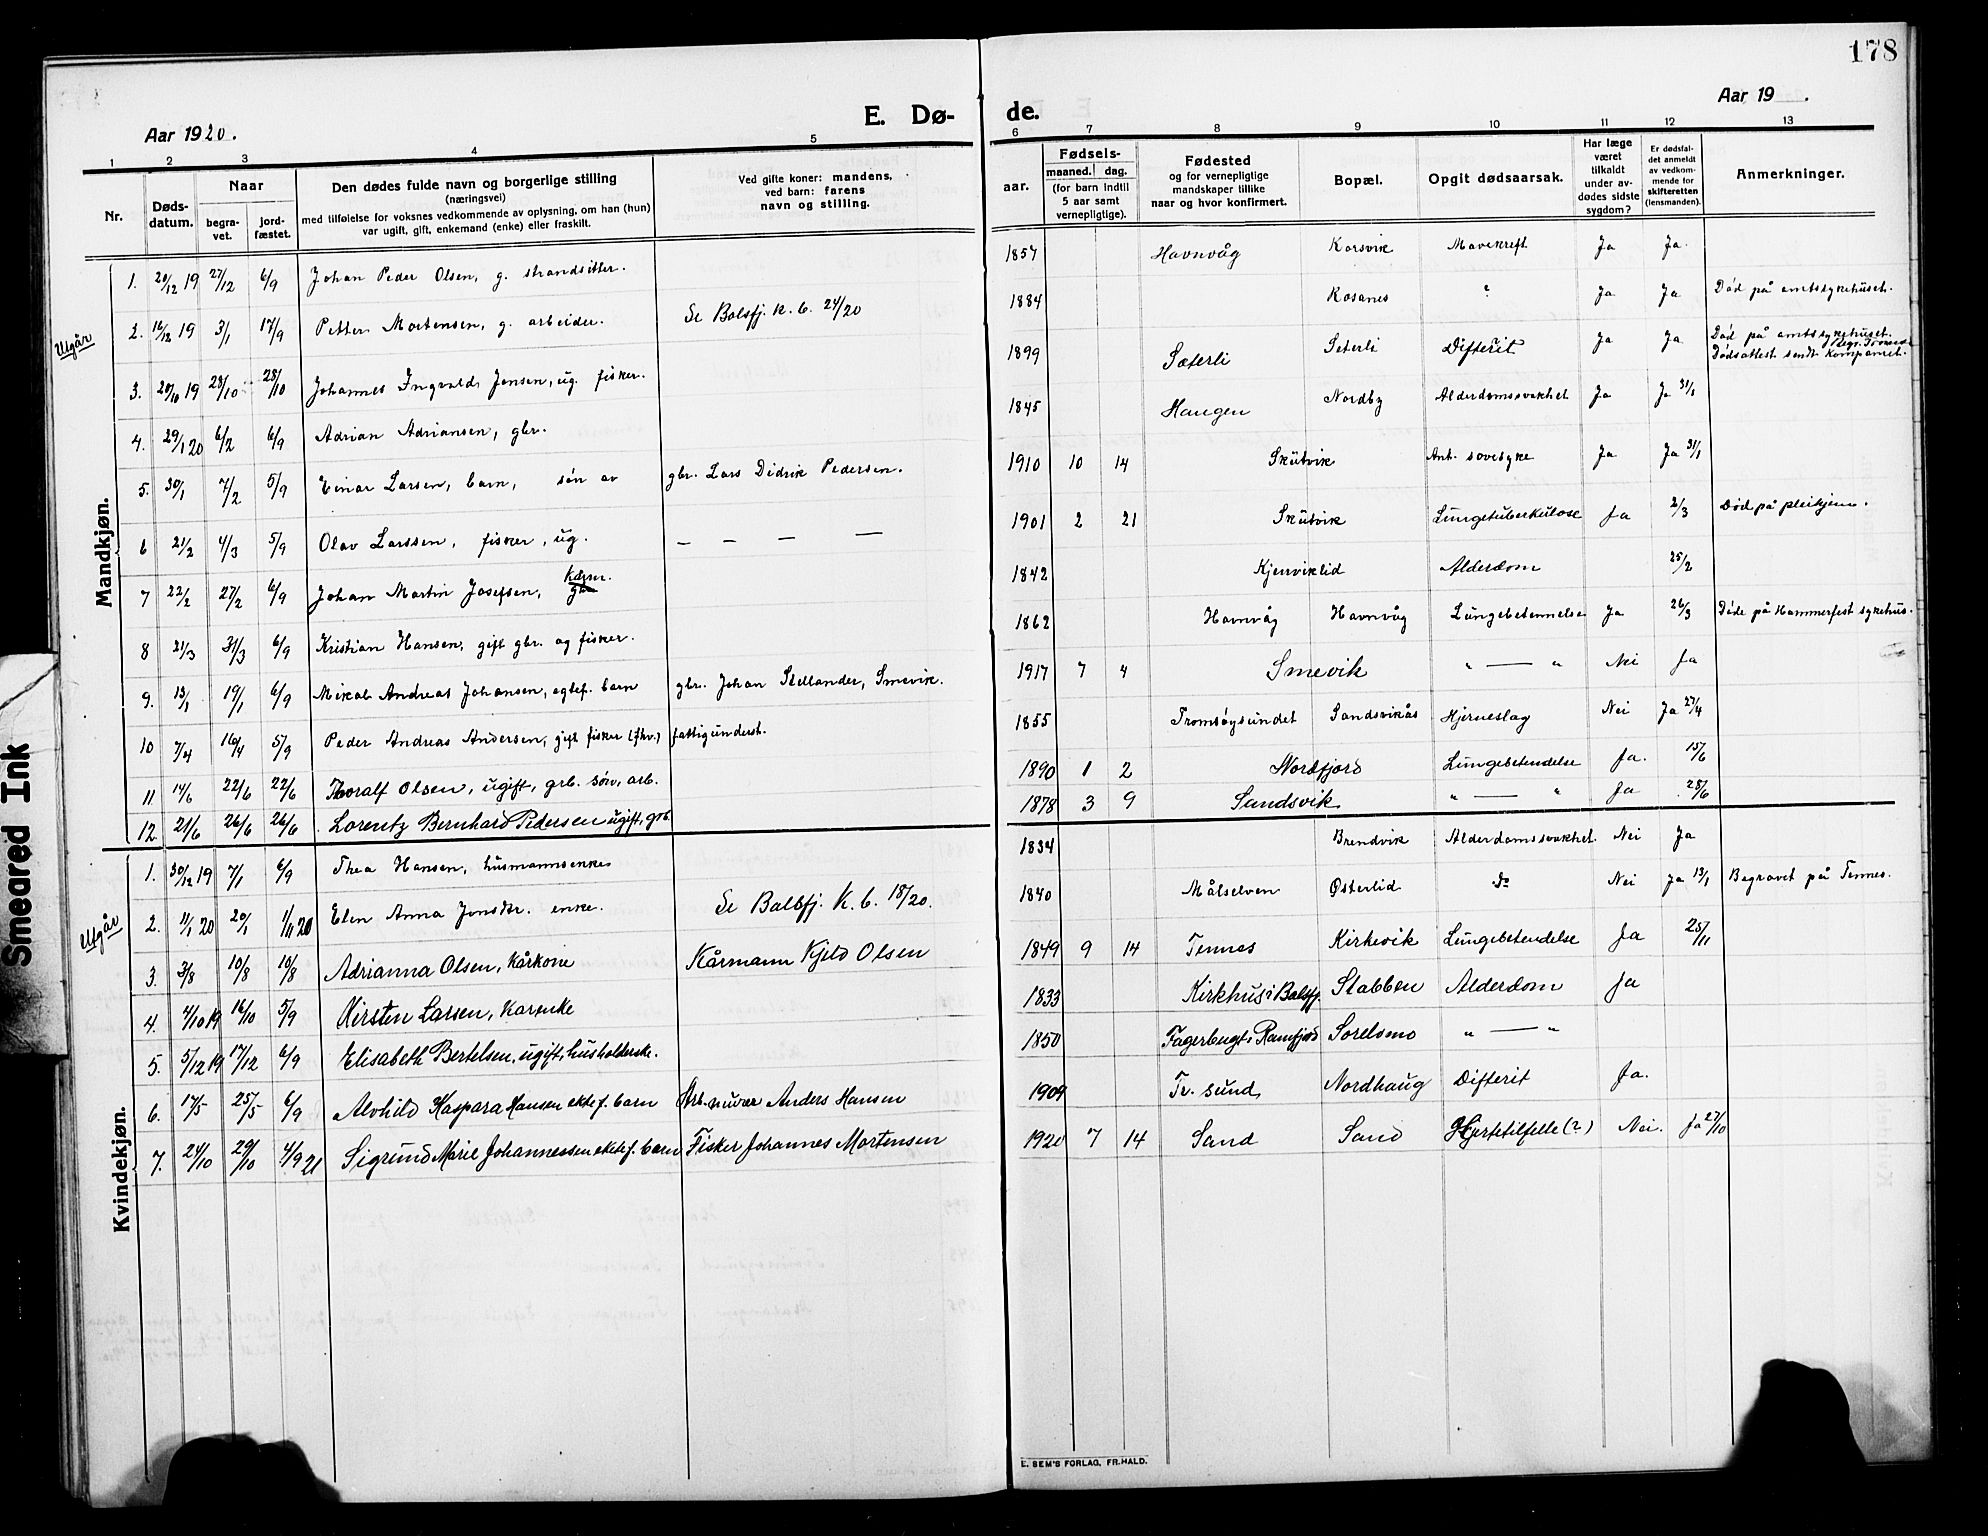 178
E. Dø-
de.
Aar 1920.
Aar 19 .
1 2 3 4 5 6 7 8 9 10 11 12 13
Nr.
Døds-
datum.
Naar
begra-
vet.
jord-
fæstet.
Den dødes fulde navn og borgerlige stilling
(næringsvei)
med tilføielse for voksnes vedkommende av oplysning, om han (hun)
var ugift, gift, enkemand (enke) eller fraskilt.
Ved gifte koner: mandens,
ved barn: farens
navn og stilling.
Fødsels-
aar.
maaned. dag.
(for barn indtil
5 aar samt
vernepligtige).
Fødested
og for vernepligtige
mandskaper tillike
naar og hvor konfirmert.
Bopæl.
Opgit dødsaarsak.
Har læge
været
tilkaldt
under av-
dødes sidste
sygdom?
Er dødsfal-
det anmeldt
av vedkom-
mende for
skifteretten
(lensmanden).
Anmerkninger.
Mandkjøn.
1. 20/12 19 27/12 6/9 Johan Peder Olsen, g. strandsitter. 1857 Havnvåg Korsvik Mavekreft Ja Ja.
Utgår 2. 16/12 19 3/1 17/9 Petter Mortensen, g. arbeider. Se Balsfj. K. b. 24/20 1884 Kosanes ? Ja Ja Død på amtssykehuset.
3. 20/10 19 28/10 28/10 Johannes Ingvald Jensen, ug. fisker. 1899 Sæterli Seterli Difterit Ja Ja Død på amtssykehuset. Begr. Tromsø
Dødsattest sendt Kompaniet.
4. 29/1 20 6/2 6/9 Adrian Adriansen, gbr. 1845 Haugen Nordby Alderdomssvakhet Ja Ja 31/1
5. 30/1 7/2 5/9 Einar Larsen, barn, søn av gbr. Lars Didrik Pedersen. 1910 10 14 Skutvik Ant. sovesyke Ja Ja 31/1
6 21/2 4/3 5/9 Olav Larssen, fisker, ug. — — — — 1901 2 21 Skutvik Lungetuberkulose Ja 2/3 Død på pleihjem.
7 22/2 27/2 6/9 Johan Martin Josefsen, Kårm. gbr 1842 Kjerviklid Alderdom 25/2
8 21/3 31/3 6/9 Kristian Hansen, gift gbr. og fisker. 1862 Havnvåg Havnvåg Lungebetennelse Ja 26/3 Døde på Hammerfest sykehus.
9. 13/1 19/1 6/9 Mikal Andreas Johansen, egtef. barn gbr. Johan Stellander, Smevik. 1917 7 4 Smevik " — " Nei Ja
10 7/4 16/4 5/9 Peder Andreas Andersen, gift fisker (fhv.) fattigunderst. 1855 Tromsøysundet Sandsvikås Hjerneslag Nei Ja 27/4
11. 14/6 22/6 22/6 Thoralf Olsen, ugift, grb. søn, arb. 1890 1 2 Nordfjord Lungebetendelse Ja. 15/6
12. 21/6 26/6 26/6 Lorentz Bernhard Pedersen ugift, grb 1878 3 9 Sandsvik " — " Ja 25/6
Kvindekjøn.
1. 30/12 19 7/1 6/9 Thea Hansen, husmannsenke 1834 Brendvik Alderdomssvakhet Nei Ja
Utgår 2. 11/1 20 20/1 1/4 20 Elen Anna Jonsdtr. enke. Se Balsfj. K. b. 18/20. 1840 Målselven Østerlid do Nei Ja 13/1 Begravet på Tennes.
3. 3/8 10/8 10/8 Adrianna Olsen, kårkone Kårmann Kjeld Olsen 1849 9 14 Tennes Kirkevik Lungebetendelse Ja 25/11
4. 4/10 19 16/10 5/9 Kirsten Larsen, Karenke 1833 Kirkhus i Balsfj. Stabben Alderdom Ja
5. 5/12 19 17/12 6/9 Elisabeth Bertelsen, ugift, husholderske. 1850 Fagerbugt i Ramfjord Sorelsmo " — "
6. 17/5 25/5 6/9 Alvhild Kaspara Hansen ektef. barn Arb. Anders Hansen 1909 Tr. sund, Nordhaug Difterit Ja.
7. 24/10 29/10 4/9 21 Sigrund Marie Johannessen ektef. barn Fisker Johannes Mortensen 1920 7 14 Sand Sand Hjertetilfelle (?) Nei. Ja 27/10
E. SEM'S FORLAG, FR.HALD.
Smeared Ink